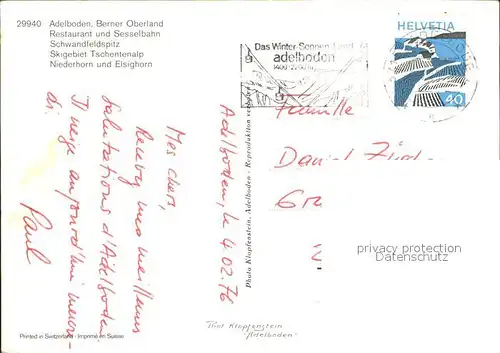 29940 Adelboden, Berner Oberland
Restaurant und Sesselbahn
Schwandfeldspitz
Skigebiet Tschentenalp
Niederhorn und Elsighorn
Das Winter-Sonnen-Land
adelboden
HELVETIA
40
Adelboden, le 4.02.76
Mes chers,
Recevez mes meilleures
salutations d'Adelboden.
Il neige aujourd'hui
Paul
Photo Klopfenstein, Adelboden - Reproduktion verboten
Famille
Daniel
privacy protection
Datenschutz
Printed in Switzerland - Imprimé en Suisse
Photo Klopfenstein
"Adelboden"